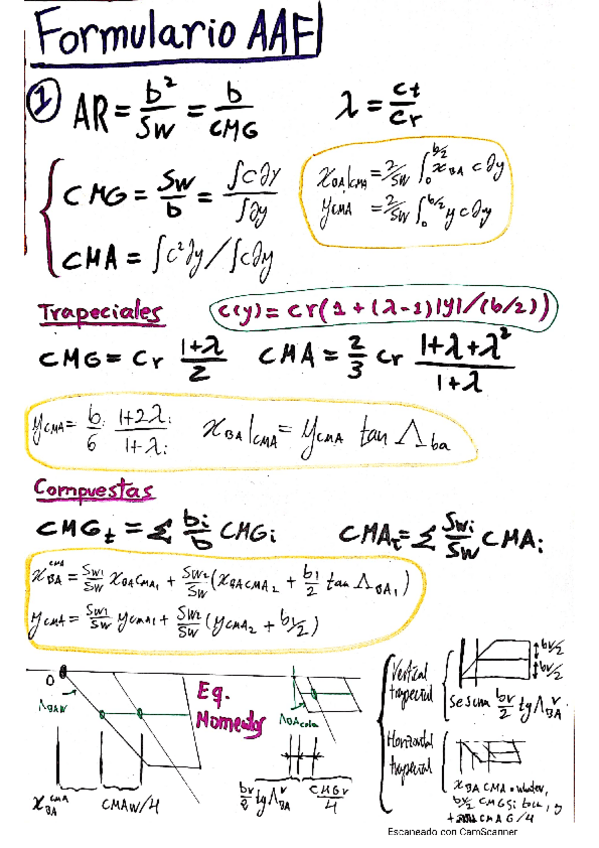 Formulario AAF
1 AR = b²/Sw = b/CMG λ = ct/cr
CMG = Sw/b = ∫c∂y/∫∂y
CMA = ∫c²∂y/∫c∂y
xBA|CMA = 2/Sw ∫₀^b/2 xBA c∂y
yCMA = 2/Sw ∫₀^b/2 y c∂y
Trapeciales c(y) = cr(1+(λ-1)|y|/(b/2))
CMG = Cr (1+λ)/2 CMA = 2/3 cr (1+λ+λ²)/(1+λ)
yCMA = b/6 (1+2λi)/(1+λi) xBA|CMA = yCMA tan Λba
Compuestas
CMGt = Σ bi/b CMGi CMAt = Σ Swi/Sw CMAi
xBA^CMA = Sw1/Sw xBACMA1 + Sw2/Sw (xBACMA2 + b1/2 tan ΛBA1)
yCMA = Sw1/Sw yCMA1 + Sw2/Sw (yCMA2 + b1/2)
0
ΛBAW
Eq.
Momentos
ΛBAcola
xBA^CMA CMAW/4
bv/2 tg ΛBA^v CMGv/4
Vertical
trapecial
bv/2
bv/2
Se suma bv/2 tg ΛBA^v
Horizontal
trapecial
xBA CMA
CMGsi
CMAG/4
Escaneado con CamScanner